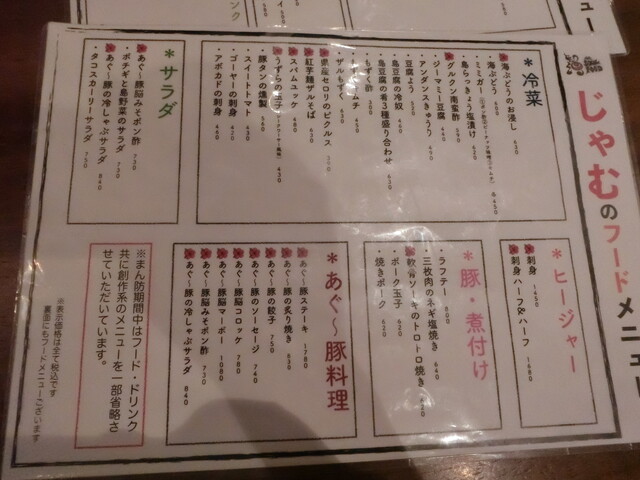 じゃむのフードメニュー
＊冷菜
海ぶどうのお浸し 630
海ぶどう 600
ミミガー
各450
島らっきょう塩漬け 620
グルクン南蛮酢 590
ジーマミー豆腐 440
アンダンスきゅうり 490
豆腐よう
島豆腐の冷奴 460
島豆腐の肴3種盛り合わせ 630
もずく酢
ザルもずく 630
紅芋麺ザルそば 630
県産セロリのピクルス 390
スパムユッケ 480
うずらの玉子 430
豚タンの燻製 580
スイートトマト 430
ゴーヤーの刺身 420
アボカドの刺身 460
＊サラダ
あぐ～豚脳みそポン酢 730
ポテギと島野菜のサラダ 730
あぐ～豚の冷しゃぶサラダ 840
タコスカーリーサラダ 750
＊ヒージャー
刺身 1450
刺身ハーフ&ハーフ 1680
＊豚・煮付け
ラフテー 800
三枚肉のネギ塩焼き 640
軟骨ソーキのトロトロ焼き 820
ポーク玉子 620
焼きポーク 620
＊あぐ～豚料理
あぐ～豚ステーキ 1780
あぐ～豚の炙り焼き 830
あぐ～豚の餃子 750
あぐ～豚のソーセージ 740
あぐ～豚脳コロッケ 780
あぐ～豚脳マーボー 1080
あぐ～豚脳みそポン酢 730
あぐ～豚の冷しゃぶサラダ 840
※まん防期間中はフード・ドリンク
共に創作系のメニューを一部省略さ
せていただいています。
※表示価格は全て税込です
裏面にもフードメニューございます